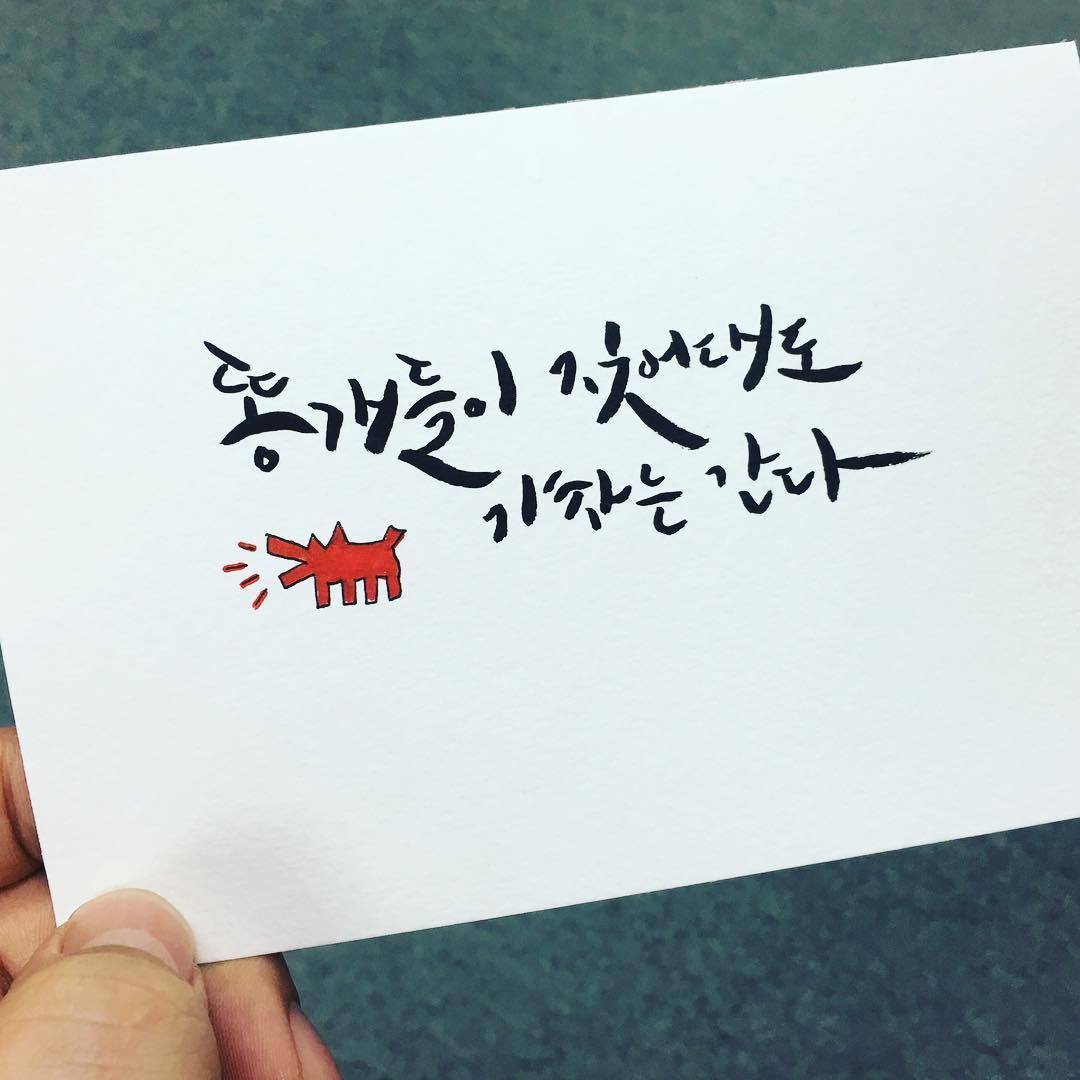 똥개들이 짖어대도
기차는 간다